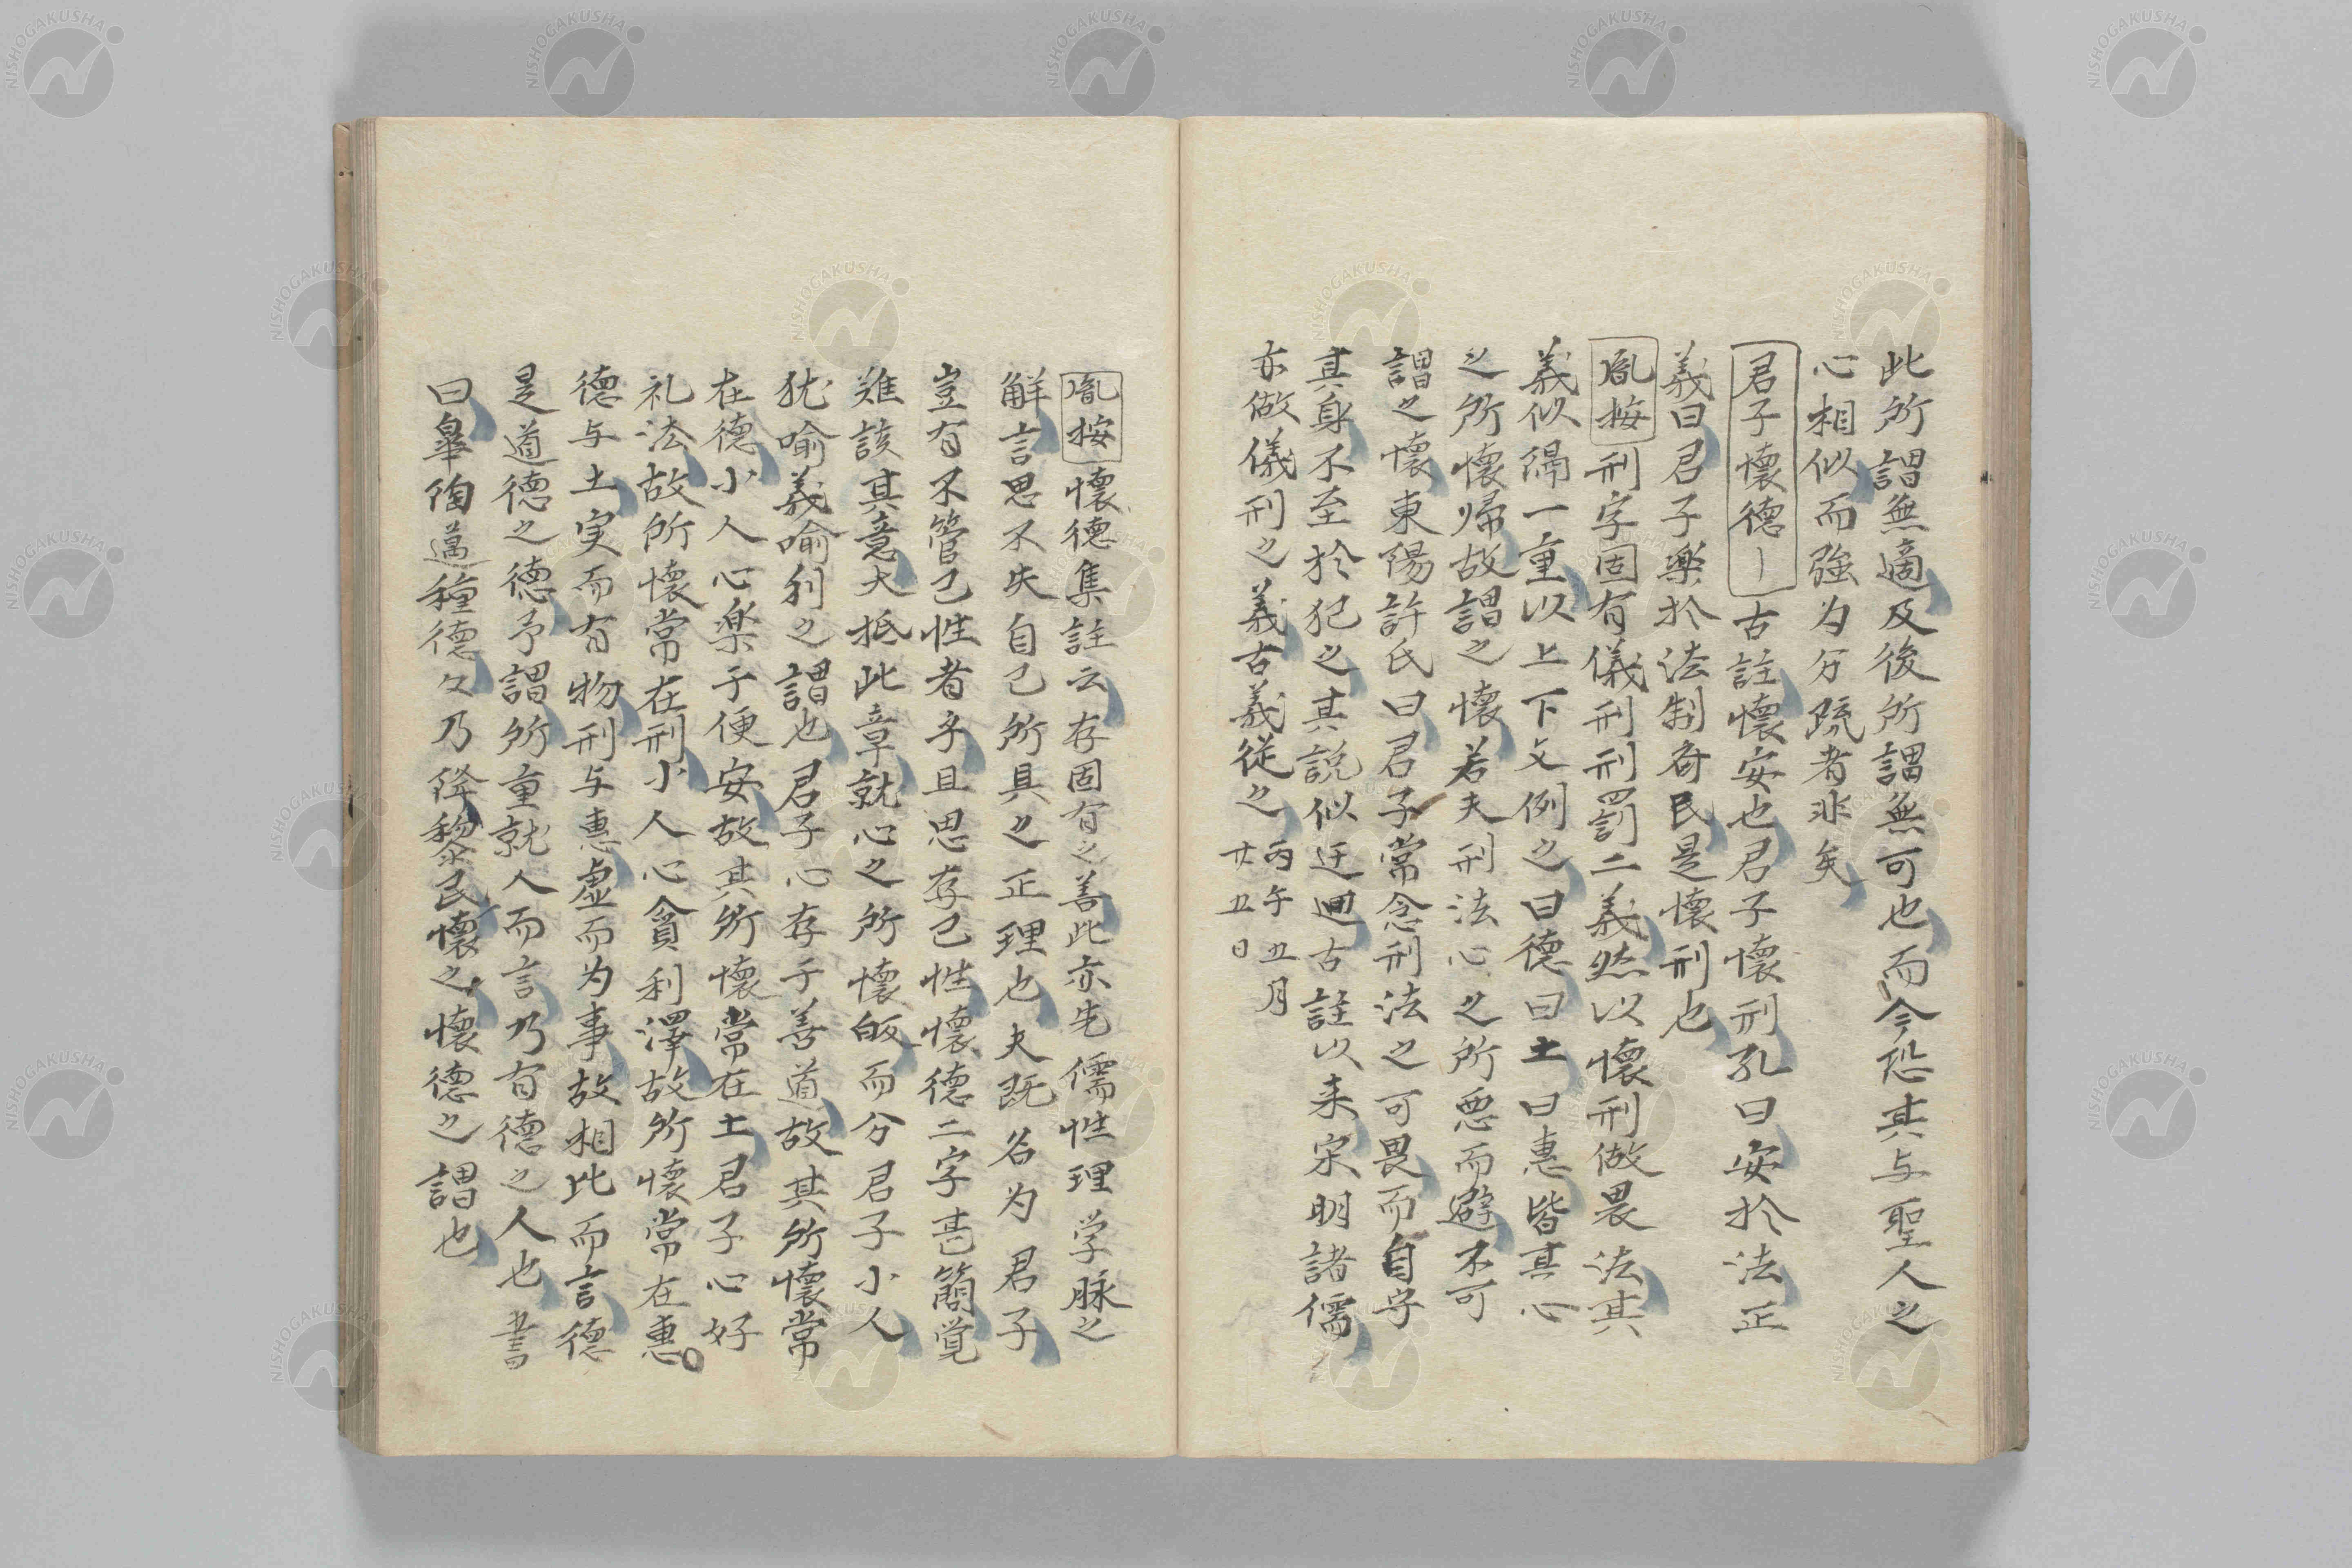 此所謂無適及後所謂無可也而今恐其与聖人之
心相似而強为分疏者非矣
君子懷德｜古註懷安也君子懷刑孔曰安於法正
義曰君子樂於法制齊民是懷刑也
胤按刑字固有儀刑刑罰二義然以懷刑做畏法其
義似隔一重以上下文例之曰德曰土曰惠皆其心
之所懷帰故謂之懷若夫刑法心之所悪而避不可
謂之懷東陽許氏曰君子常念刑法之可畏而自守
其身不至於犯之其説似迂廻古註以来宋明諸儒
亦做儀刑之義古義従之 丙午五月
廿五日
胤按懷德集註云存固有之善此亦先儒性理学脉之
解言思不失自己所具之正理也夫既名为君子
豈有不管己性者乎且思存己性懷德二字甚簡覚
難該其意大抵此章就心之所懷皈而分君子小人
犹喻義喻利之謂也君子心存于善道故其所懷常
在德小人心楽于便安故其所懷常在土君子心好
礼法故所懷常在刑小人心貪利澤故所懷常在惠
德与土実而有物刑与惠虚而为事故相比而言德
是道德之德予謂所重就人而言乃有德之人也書
曰皐陶邁種德々乃降黎民懷之懷德之謂也
NISHOGAKUSHA